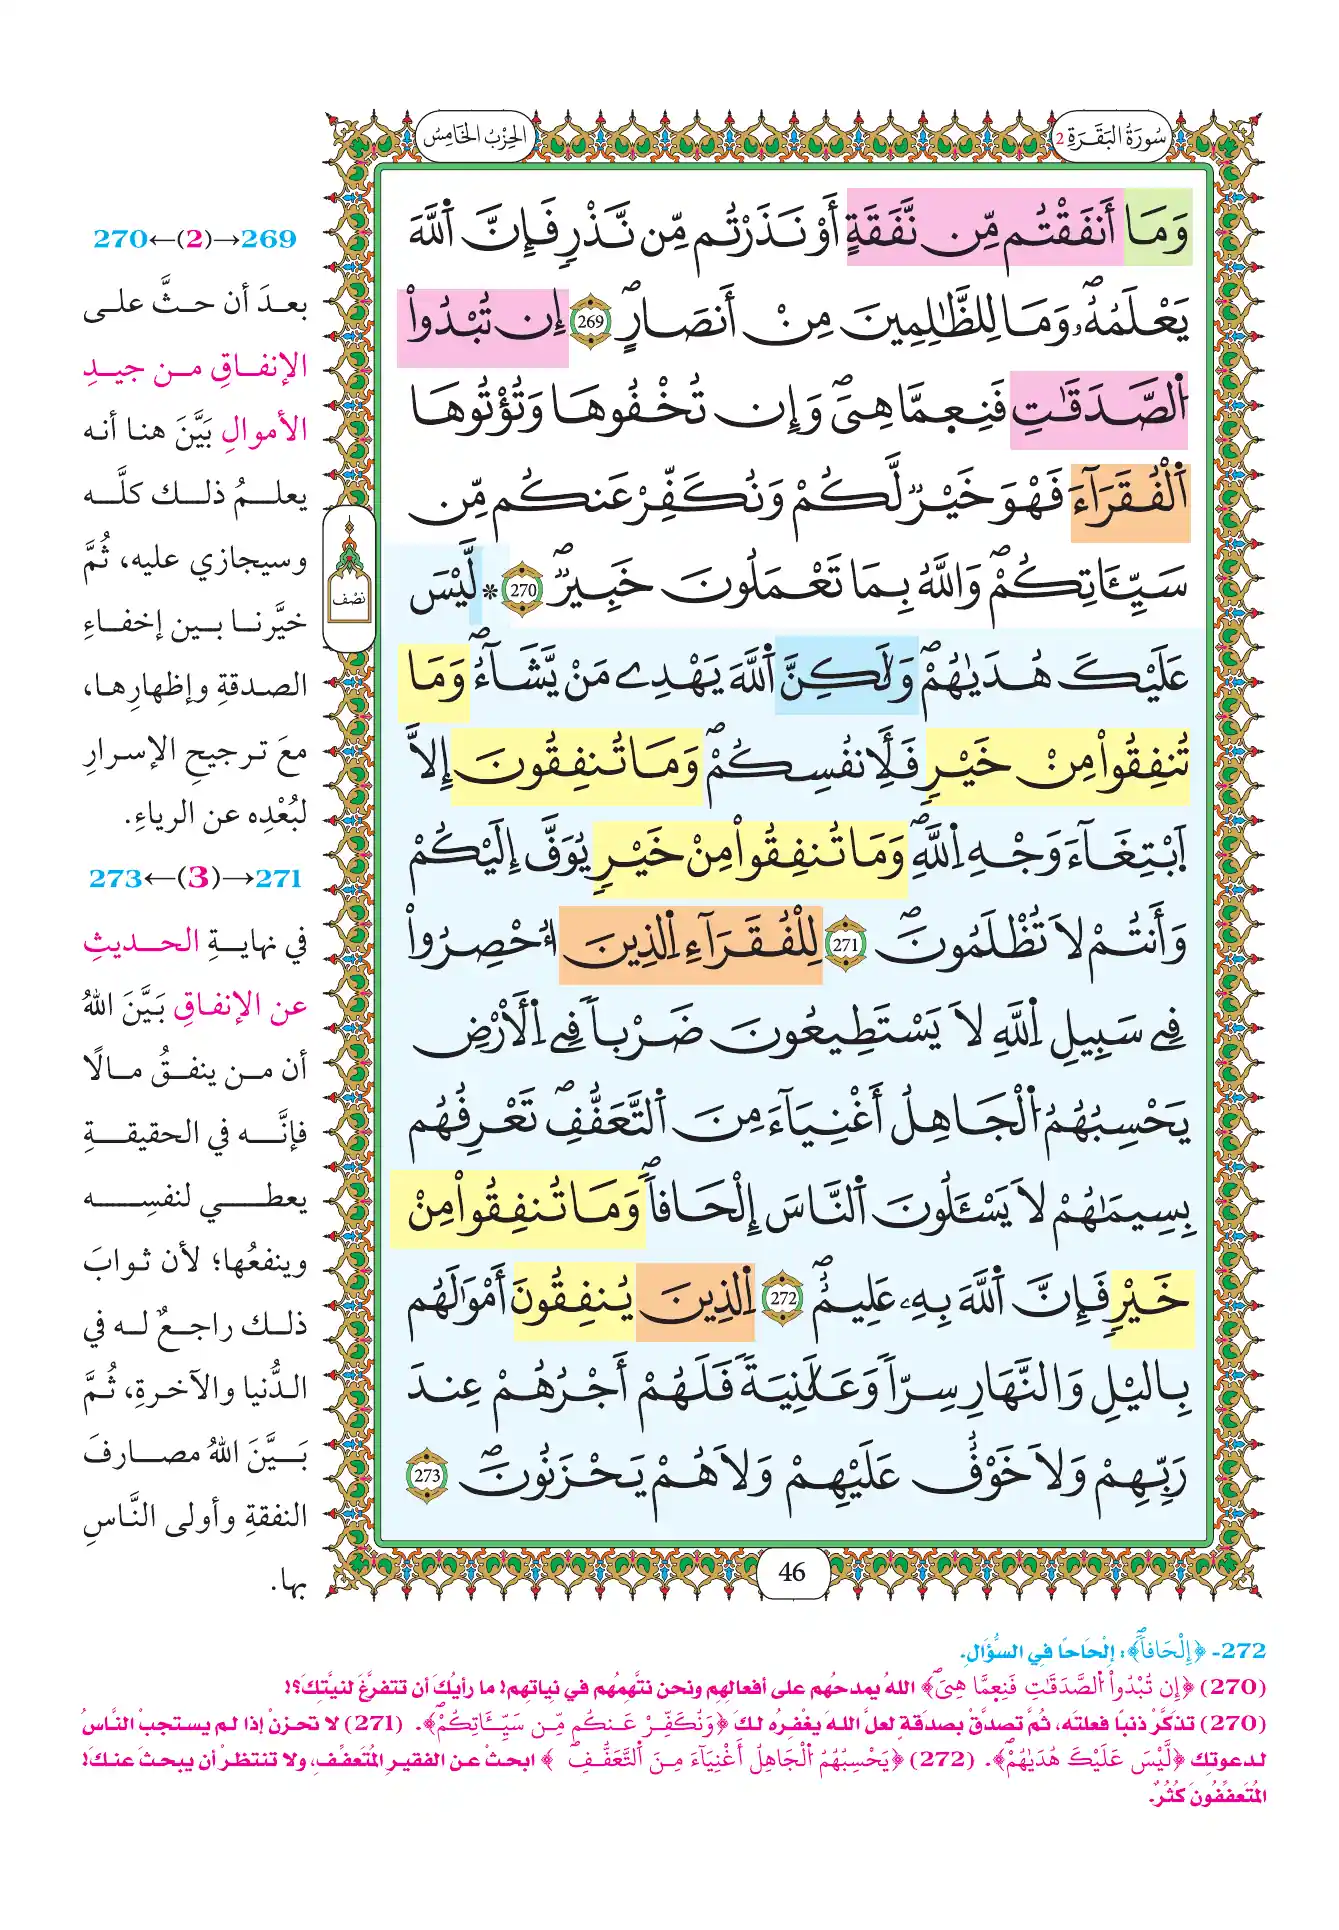 سُورَةُ البَقَرَةِ 2
الحِزْبُ الخَامِسُ
وَمَا أَنفَقْتُم مِّن نَّفَقَةٍ أَوْ نَذَرْتُم مِّن نَّذْرٍ فَإِنَّ اَللَّهَ
يَعْلَمُهُۥ وَمَا لِلظَّٰلِمِينَ مِنْ أَنصَارٍ 269 إِن تُبْدُواْ
اُلصَّدَقَٰتِ فَنِعِمَّا هِيَ وَإِن تُخْفُوهَا وَتُؤْتُوهَا
اَلْفُقَرَآءَ فَهُوَ خَيْرٌ لَّكُمْ وَنُكَفِّرْ عَنكُم مِّن
سَيِّـَٔاتِكُمْ وَاللَّهُ بِمَا تَعْمَلُونَ خَبِيرٌ 270 * لَّيْسَ
عَلَيْكَ هُدَىٰهُمْ وَلَٰكِنَّ اَللَّهَ يَهْدِے مَنْ يَّشَآءُ وَمَا
تُنفِقُواْ مِنْ خَيْرٍ فَلِأَنفُسِكُمْ وَمَا تُنفِقُونَ إِلَّا
اَبْتِغَآءَ وَجْهِ اِللَّهِ وَمَا تُنفِقُواْ مِنْ خَيْرٍ يُوَفَّ إِلَيْكُمْ
وَأَنتُمْ لَا تُظْلَمُونَ 271 لِلْفُقَرَآءِ اِلذِينَ أُحْصِرُواْ
فِے سَبِيلِ اِللَّهِ لَا يَسْتَطِيعُونَ ضَرْباً فِے اِلْأَرْضِ
يَحْسِبُهُمُ اُلْجَاهِلُ أَغْنِيَآءَ مِنَ اَلتَّعَفُّفِ تَعْرِفُهُم
بِسِيمَٰهُمْ لَا يَسْـَٔلُونَ اَلنَّاسَ إِلْحَافاً وَمَا تُنفِقُواْ مِنْ
خَيْرٍ فَإِنَّ اَللَّهَ بِهِۦ عَلِيمٌ 272 اِلذِينَ يُنفِقُونَ أَمْوَٰلَهُم
بِاليْلِ وَالنَّهَارِ سِرّاً وَعَلَٰنِيَةً فَلَهُمْ أَجْرُهُمْ عِندَ
رَبِّهِمْ وَلَا خَوْفٌ عَلَيْهِمْ وَلَا هُمْ يَحْزَنُونَ 273
نصف
46
269→(2)←270
بعدَ أن حثَّ على
الإنفاقِ من جيدِ
الأموالِ بَيَّنَ هنا أنه
يعلمُ ذلك كلَّه
وسيجازي عليه، ثُمَّ
خيَّرنا بين إخفاءِ
الصدقةِ وإظهارِها،
معَ ترجيحِ الإسرارِ
لبُعْدِه عن الرياءِ.
271→(3)←273
في نهايةِ الحديثِ
عن الإنفاقِ بَيَّنَ اللهُ
أن من ينفقُ مالًا
فإنَّه في الحقيقةِ
يعطي لنفسِه
وينفعُها؛ لأن ثوابَ
ذلك راجعٌ له في
الدُّنيا والآخرةِ، ثُمَّ
بَيَّنَ اللهُ مصارفَ
النفقةِ وأولى النَّاسِ
بها.
272- ﴿إِلْحَافاً﴾: إلحَاحًا في السُّؤَالِ.
(270) ﴿إِن تُبْدُواْ اُلصَّدَقَٰتِ فَنِعِمَّا هِيَ﴾ اللهُ يمدحُهم على أفعالِهِم ونحن نتَّهِمُهم في نياتِهم! ما رأيُكَ أن تتفرَّغَ لنيَّتِكَ؟!
(270) تذكَّرْ ذنبًا فعلتَه، ثُمَّ تصدَّقْ بصدقةٍ لعلَّ اللهَ يغْفِرُه لكَ ﴿وَنُكَفِّرْ عَنكُم مِّن سَيِّـَٔاتِكُمْ﴾. (271) لا تحزنْ إذا لم يستجبْ النَّاسُ
لدعوتِك ﴿لَّيْسَ عَلَيْكَ هُدَىٰهُمْ﴾. (272) ﴿يَحْسِبُهُمُ اُلْجَاهِلُ أَغْنِيَآءَ مِنَ اَلتَّعَفُّفِ ﴾ ابحثْ عن الفقيرِ المُتَعفِّفِ، ولا تنتظرْ أن يبحثَ عنكَ!
المُتَعفِّفُونَ كُثُرٌ.